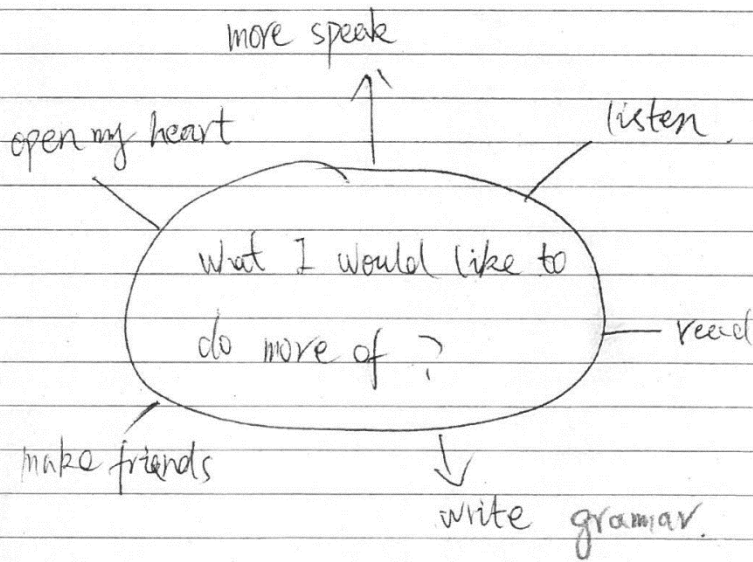 more speak
open my heart
listen.
What I would like to
do more of ?
read
make friends
write gramar.